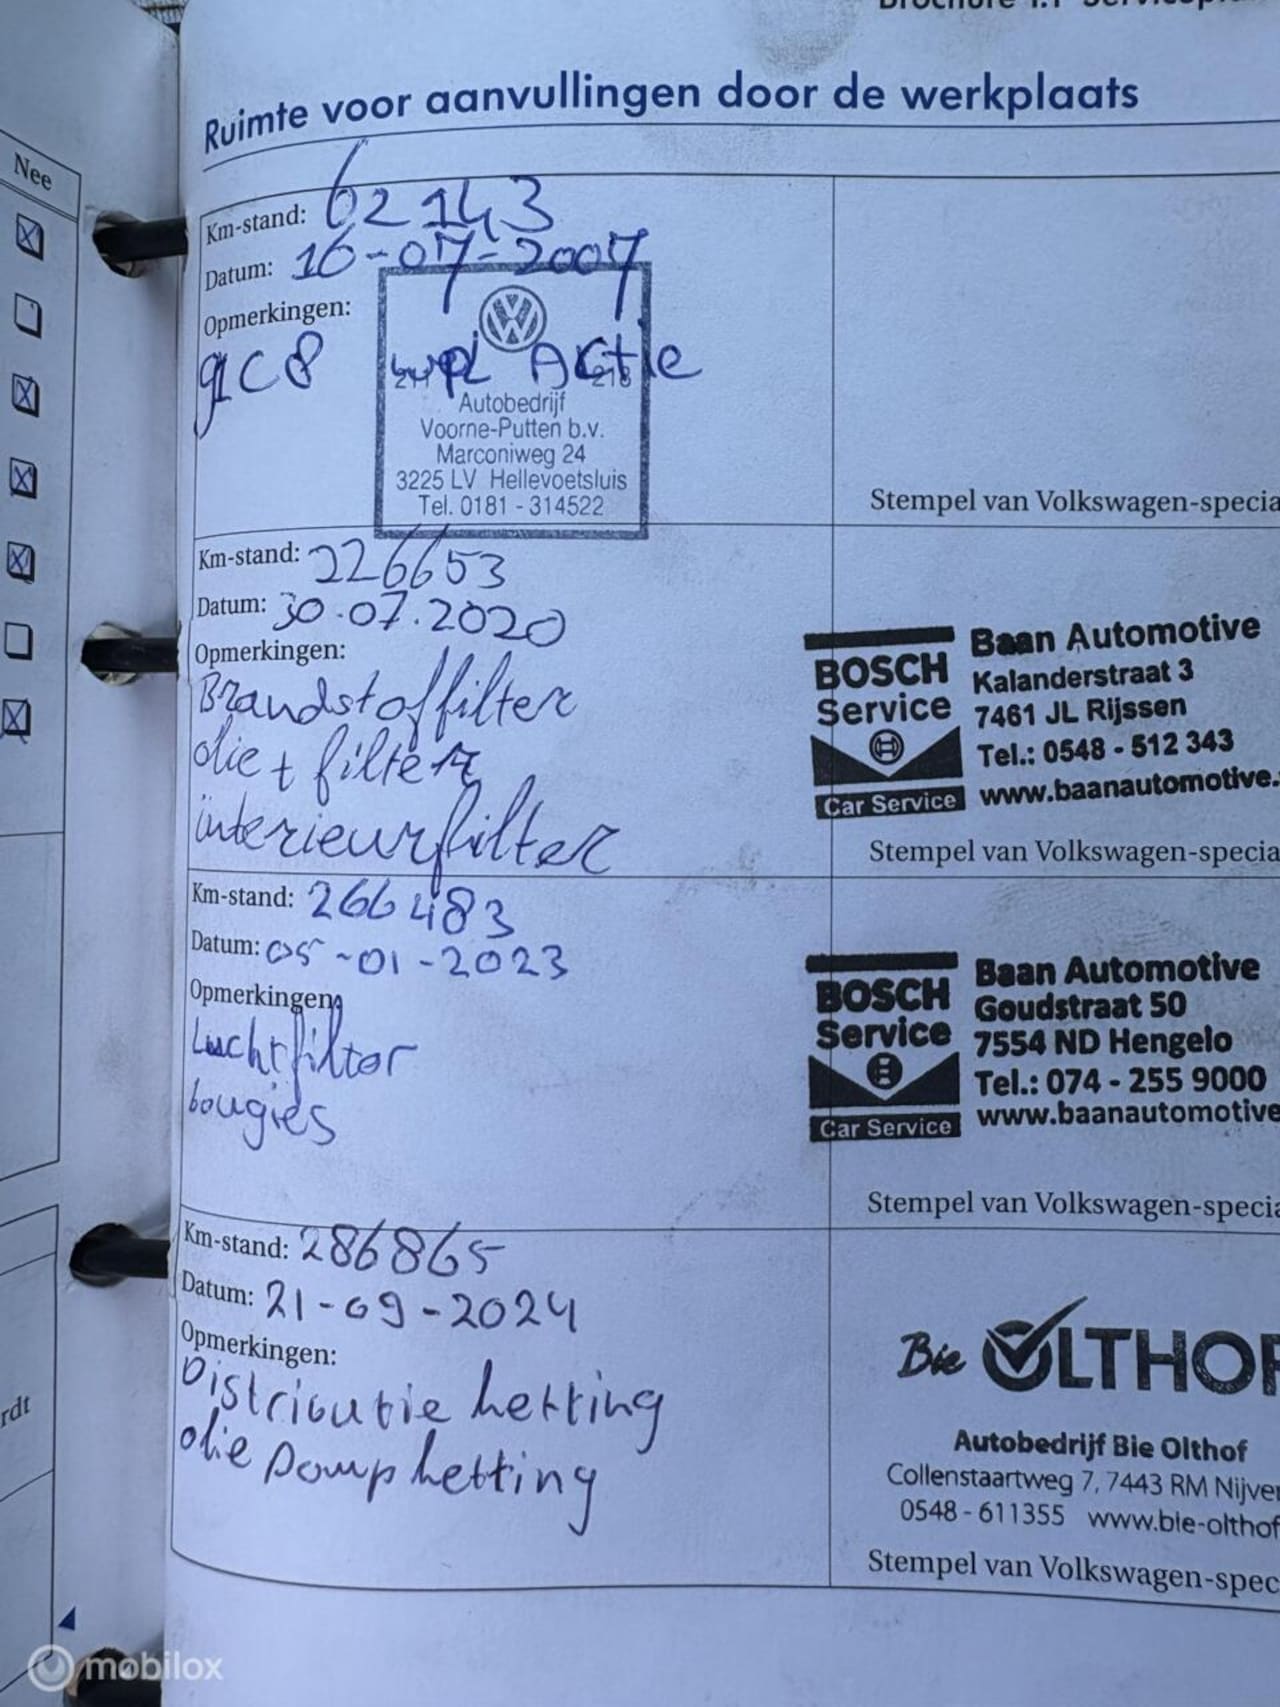 Ruimte voor aanvullingen door de werkplaats
Nee
Km-stand: 62143
Datum: 16-07-2007
Opmerkingen:
91C8 wpl Actie
Autobedrijf
Voorne-Putten b.v.
Marconiweg 24
3225 LV Hellevoetsluis
Tel. 0181 - 314522
Stempel van Volkswagen-specia
Km-stand: 226653
Datum: 30.07.2020
Opmerkingen:
Brandstoffilter
olie + filter
interieurfilter
BOSCH
Service
Car Service
Baan Automotive
Kalanderstraat 3
7461 JL Rijssen
Tel.: 0548 - 512 343
www.baanautomotive.
Stempel van Volkswagen-specia
Km-stand: 266483
Datum: 05-01-2023
Opmerkingen:
Luchtfilter
bougies
BOSCH
Service
Car Service
Baan Automotive
Goudstraat 50
7554 ND Hengelo
Tel.: 074 - 255 9000
www.baanautomotive
Stempel van Volkswagen-specia
Km-stand: 286865
Datum: 21-09-2024
Opmerkingen:
Distributie ketting
olie Pomp ketting
Bie OLTHOF
Autobedrijf Bie Olthof
Collenstaartweg 7, 7443 RM Nijver
0548 - 611355 www.bie-olthof
Stempel van Volkswagen-spec
rdt
mobilox